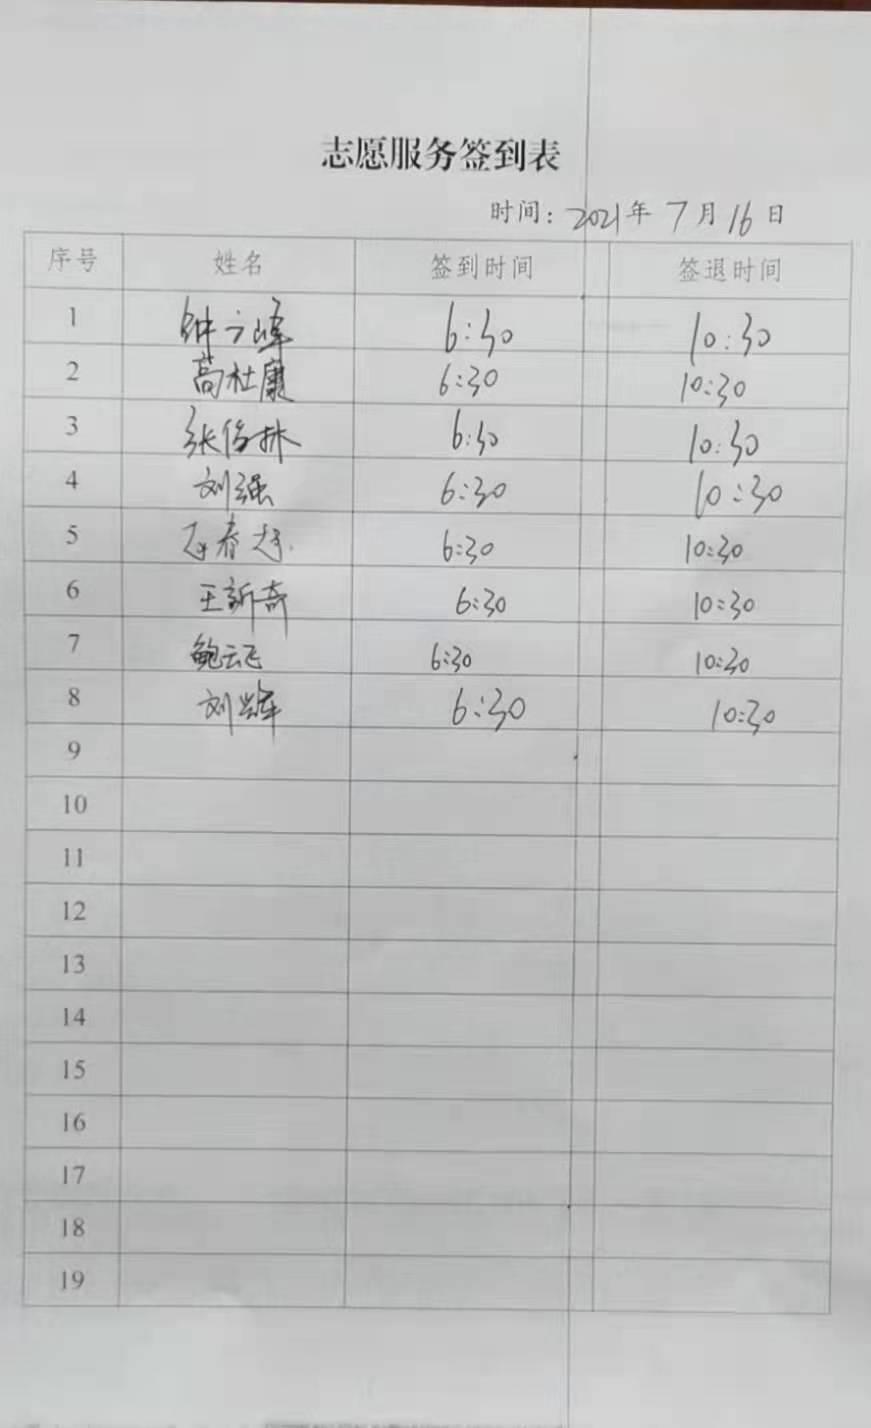 志愿服务签到表
时间: 2021年 7月16日
序号 姓名 签到时间 签退时间
1 钟立峰 6:30 10:30
2 高杜康 6:30 10:30
3 张俊林 6:30 10:30
4 刘强 6:30 10:30
5 春 6:30 10:30
6 王新奇 6:30 10:30
7 鲍云飞 6:30 10:30
8 刘 6:30 10:30
9
10
11
12
13
14
15
16
17
18
19